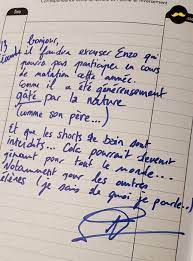 Bonjour,
il faudra excuser Enzo qui
pourra pas participer en cours
de natation cette année.
Comme il a été généreusement
gâté par la nature
(comme son père...)
Et que les shorts de bain sont
interdits... Cela pourrait devenir
gênant pour tout le monde...
Notamment pour les autres
élèves (je sais de quoi je parle..)